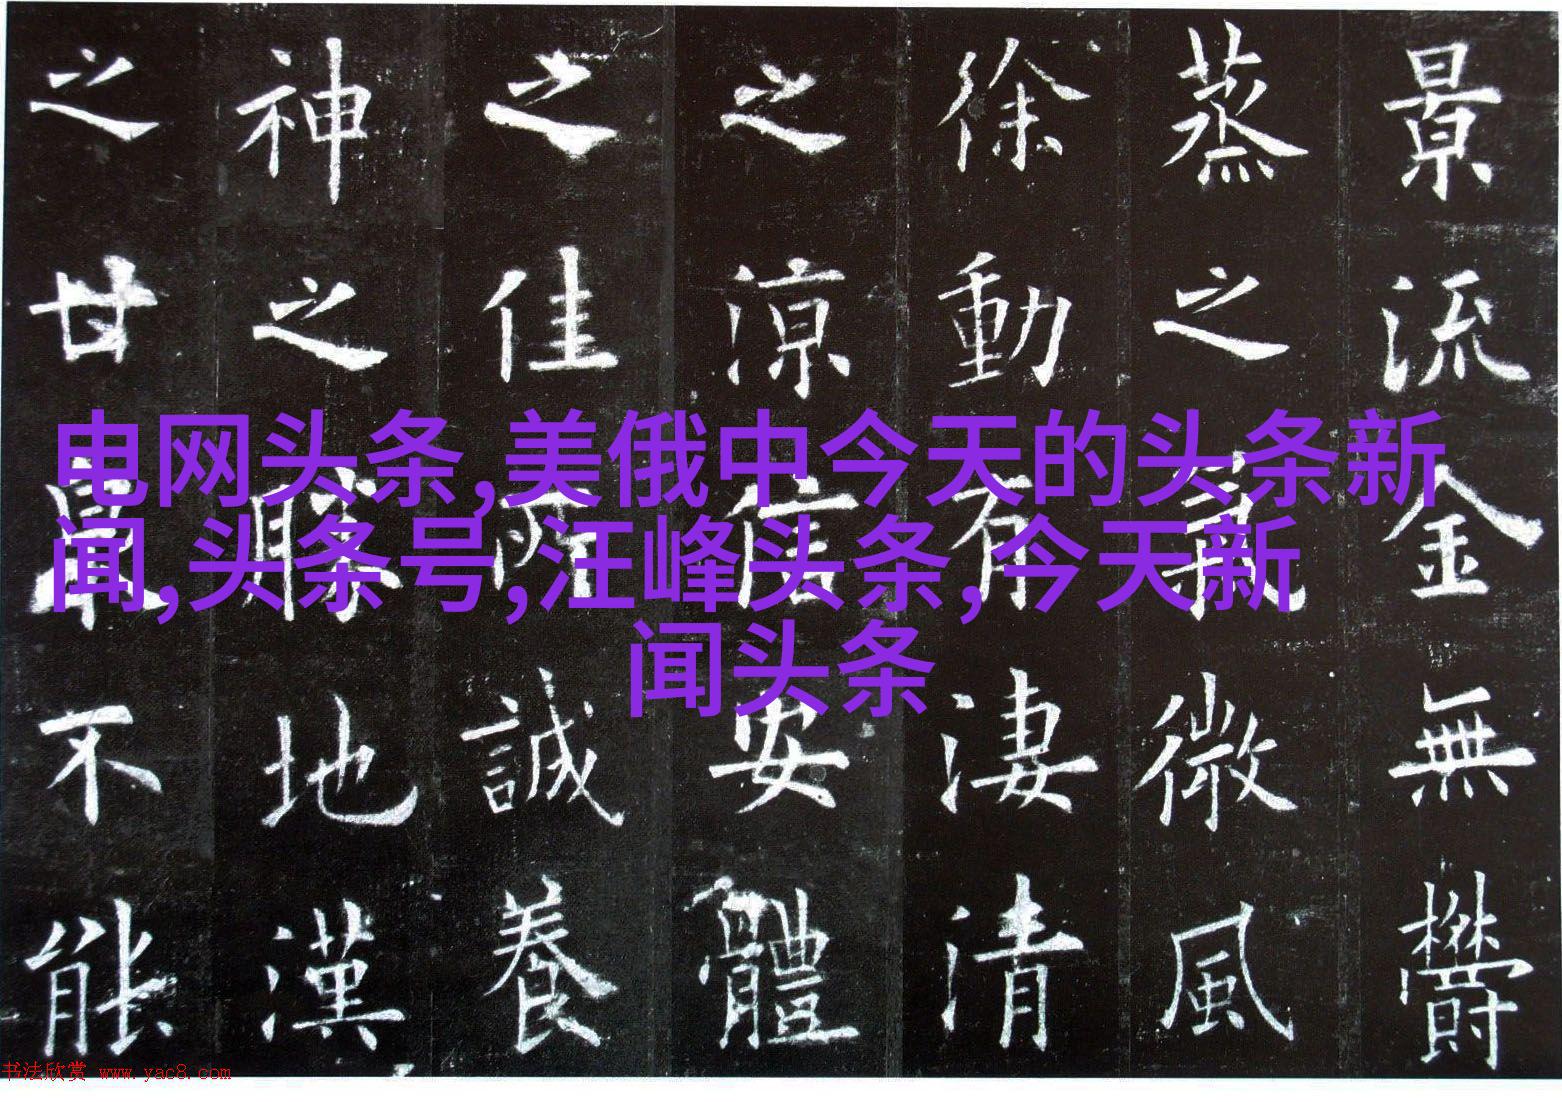 景流金無鬱
蒸之氣微風
徐動有淒清
之涼信安體
之佳所誠養
神之勝地漢
之甘泉不能
电网头条,美俄中今天的头条新
闻,头条号,汪峰头条,今天新
闻头条
书法欣赏 www.yac8.com